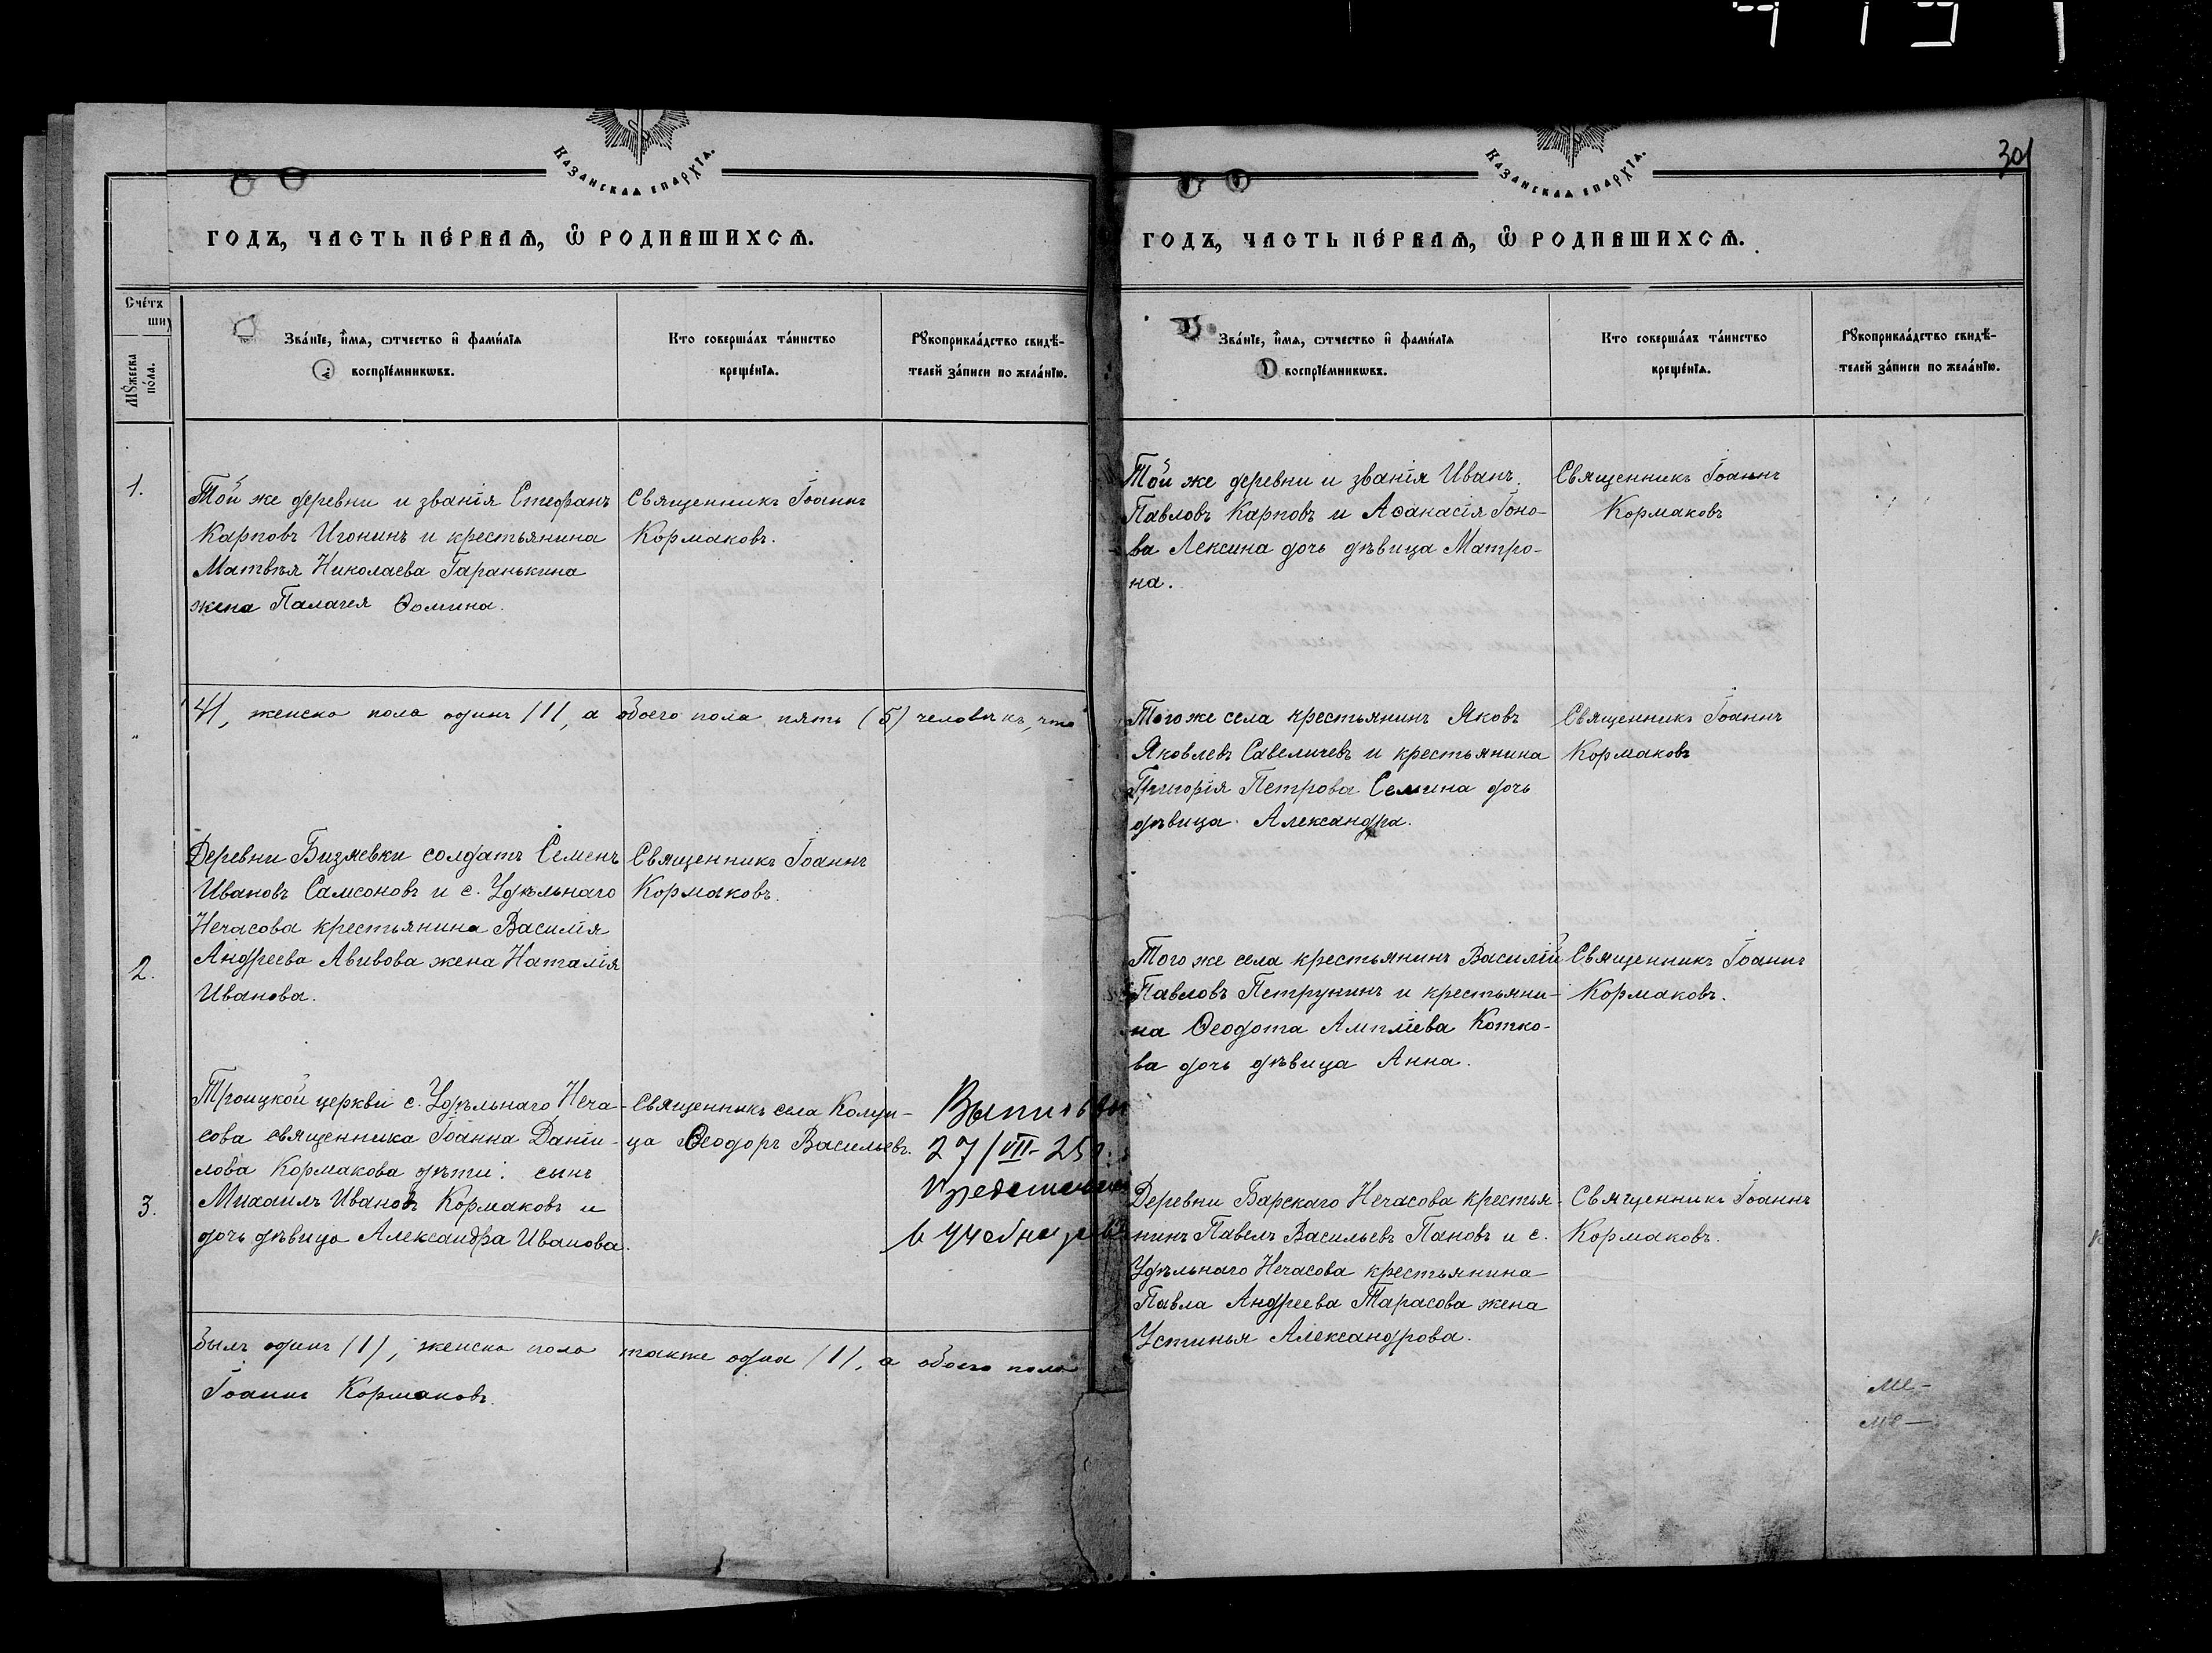 КАЗАНСКАЯ ЕПАРХІЯ.
ГОДЪ, ЧАСТЬ ПЕ́РВАЯ, Ѡ҆ РОДИВШИХСЯ.
Счéтъ
ших
Мꙋ́жеска
по́ла.
Зва́нїе, и҆́мя, ѻ҆́тчество и҆ фами́лїя
воспрїе́мникѡвъ.
Кто соверша́лъ та́инство
креще́нїѧ.
Рꙋкоприкла́дство свидѣ́-
телей за́писи по жела́нїю.
1.
Той же деревни и званія Стефанъ
Карповъ Игонинъ и крестьянина
Матвѣя Николаева Гаранькина
жена Палагея Ѳомина.
Священникъ Іоаннъ
Кормаковъ.
/4/, женска пола одинъ /1/, а обоего пола пять (5) человѣкъ, что
Деревни Бизяевки солдатъ Семенъ
Ивановъ Самсоновъ и с. Удѣльнаго
Нечасова крестьянина Василія
Андреева Авивова жена Наталія
Иванова.
Священникъ Іоаннъ
Кормаковъ.
2.
Троицкой церкви с. Удѣльнаго Неча-
сова священника Іоанна Даніи-
лова Кормакова дѣти: сынъ
Михаилъ Ивановъ Кормаковъ и
дочь дѣвица Александра Иванова.
Священникъ села
ца Ѳеодоръ Васильевъ.
27/VII-25 г.
3.
былъ одинъ /1/, женска пола также одна /1/, а обоего пола
Іоаннъ Кормаковъ.
301
КАЗАНСКАЯ ЕПАРХІЯ.
ГОДЪ, ЧАСТЬ ПЕ́РВАЯ, Ѡ҆ РОДИВШИХСЯ.
Зва́нїе, и҆́мя, ѻ҆́тчество и҆ фами́лїя
воспрїе́мникѡвъ.
Кто соверша́лъ та́инство
креще́нїѧ.
Рꙋкоприкла́дство свидѣ́-
телей за́писи по жела́нїю.
Той же деревни и званія Иванъ
Павловъ Карповъ и Аѳанасія Іоно-
ва Лексина дочь дѣвица Матро-
на.
Священникъ Іоаннъ
Кормаковъ
Того же села крестьянинъ Яковъ
Яковлевъ Савеличевъ и крестьянина
Григорія Петрова Семина дочь
дѣвица Александра.
Священникъ Іоаннъ
Кормаковъ
Того же села крестьянинъ Василій
Павловъ Петрунинъ и крестьяни-
на Ѳеодота Ампліева Котко-
ва дочь дѣвица Анна.
Священникъ Іоаннъ
Кормаковъ.
Деревни Барскаго Нечасова крестья-
нинъ Павелъ Васильевъ Пановъ и с.
Удѣльнаго Нечасова крестьянина
Павла Андреева Тарасова жена
Устинья Александрова.
Священникъ Іоаннъ
Кормаковъ.